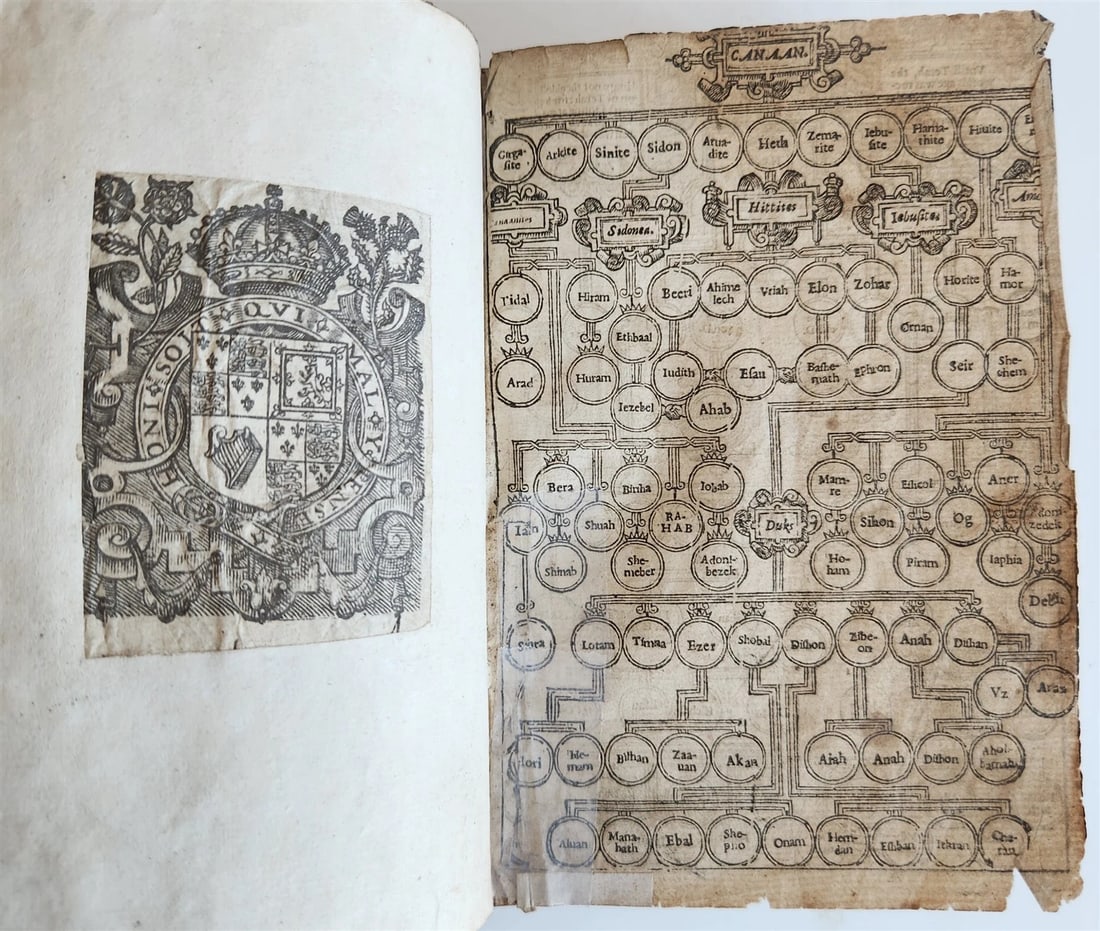 HONI · SOIT · QVI · MAL · Y · PENSE
CANAAN.
Girga-
site
Arkite
Sinite
Sidon
Arua-
dite
Heth
Zema-
rite
Iebu-
site
Hama-
thite
Hiuite
Sidones.
Hittites
Iebusites
Tidal
Hiram
Beeri
Ahime
lech
Vriah
Elon
Zohar
Horite
Ha-
mor
Ethbaal
Ornan
Arad
Huram
Iudith
Esau
Bashe-
math
Ephron
Seir
She-
chem
Iezebel
Ahab
Bera
Birsha
Iobab
Mam-
re
Eshcol
Aner
Shuah
RA-
HAB
Duks
Sihon
Og
Adoni-
zedek
Shinab
She-
meber
Adoni-
bezek
Ho-
ham
Piram
Iaphia
Debir
Lotam
Timna
Ezer
Shobal
Dishon
Zibe-
on
Anah
Dishan
Vz
Aran
Hori
He-
mam
Bilhan
Zaa-
uan
Akan
Aiah
Anah
Dishon
Ahol-
bamah
Aluan
Mana-
hath
Ebal
She-
pho
Onam
Hem-
dan
Eshban
Ithran
Che-
ran